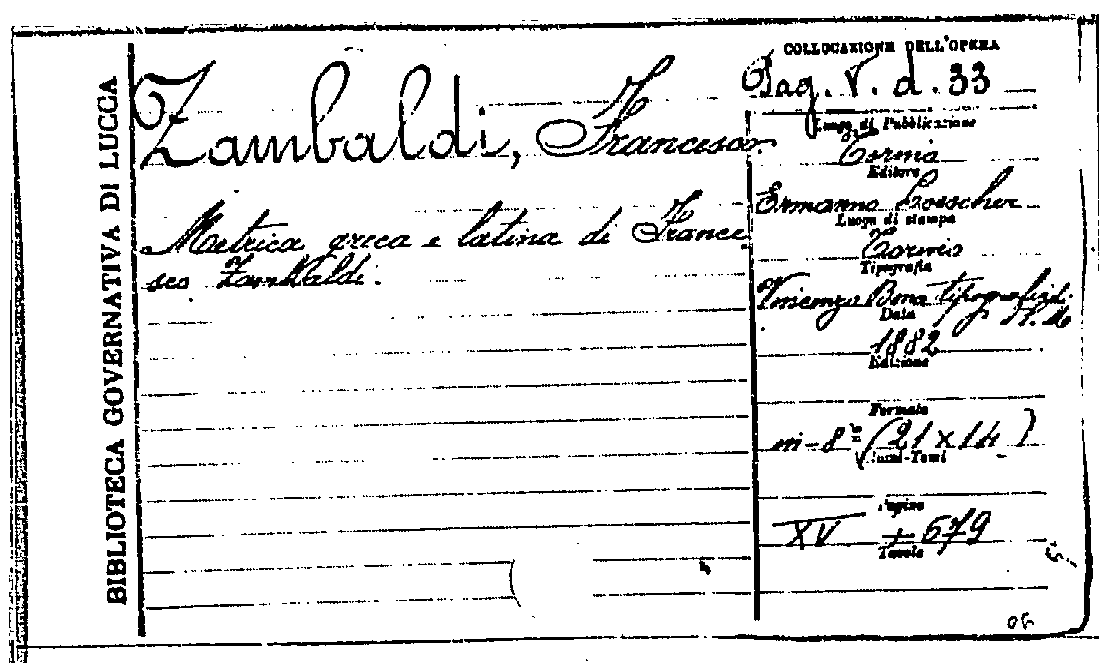 BIBLIOTECA GOVERNATIVA DI LUCCA
Zambaldi, Francesco.
Metrica greca e latina di France
sco Zambaldi.
COLLOCAZIONE DELL'OPERA
Pag. V. d. 33
Luogo di Pubblicazione
Torino
Editore
Ermanno Loescher
Luogo di stampa
Torino
Tipografia
Vincenzo Bona tipografo di
S. M.
Data
1882
Edizione
Formato
in-8º (21 x 14)
Vol.mi-Tomi
Pagine
XV + 679
Tavole